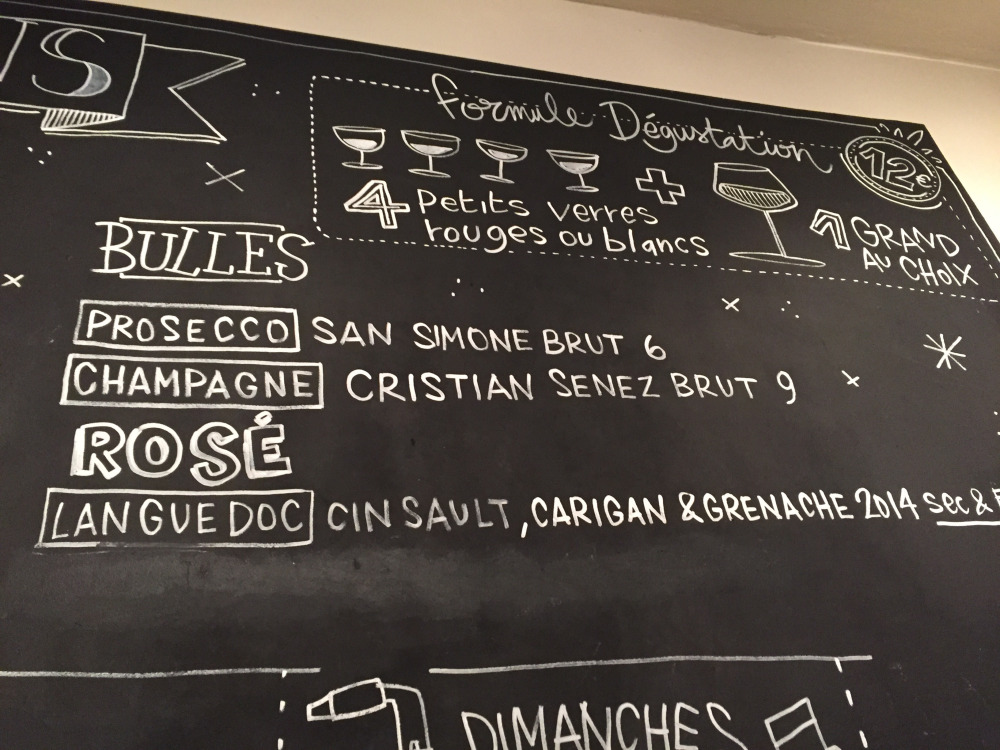 S
Formule Dégustation
12€
4 Petits verres
rouges ou blancs
+
1 GRAND
AU CHOIX
BULLES
PROSECCO SAN SIMONE BRUT 6
CHAMPAGNE CRISTIAN SENEZ BRUT 9
ROSÉ
LANGUEDOC CINSAULT, CARIGAN & GRENACHE 2014 sec &
DIMANCHES